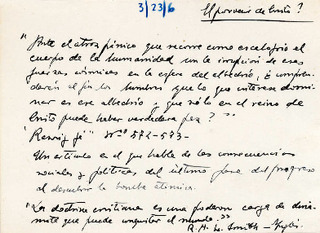 3/23/6
El porvenir de Cristo?
"Ante el atroz pánico que recorre como escalofrío el
cuerpo de la humanidad con la irrupción de esas
fuerzas cósmicas en la esfera del albedrío, ¿comprenderán
al fin los hombres que lo que interesa dominar
es ese albedrío y que sólo en el reino de
Cristo puede haber verdadera paz?"
"Razón y fé" Nos 572-573-
Un artículo en el que habla de las consecuencias
sociales y políticas, del último fase del progreso
al descubrir la bomba atómica.
"La doctrina cristiana es una poderosa carga de dinamita
que puede conquistar el mundo."
R. M. Smith -